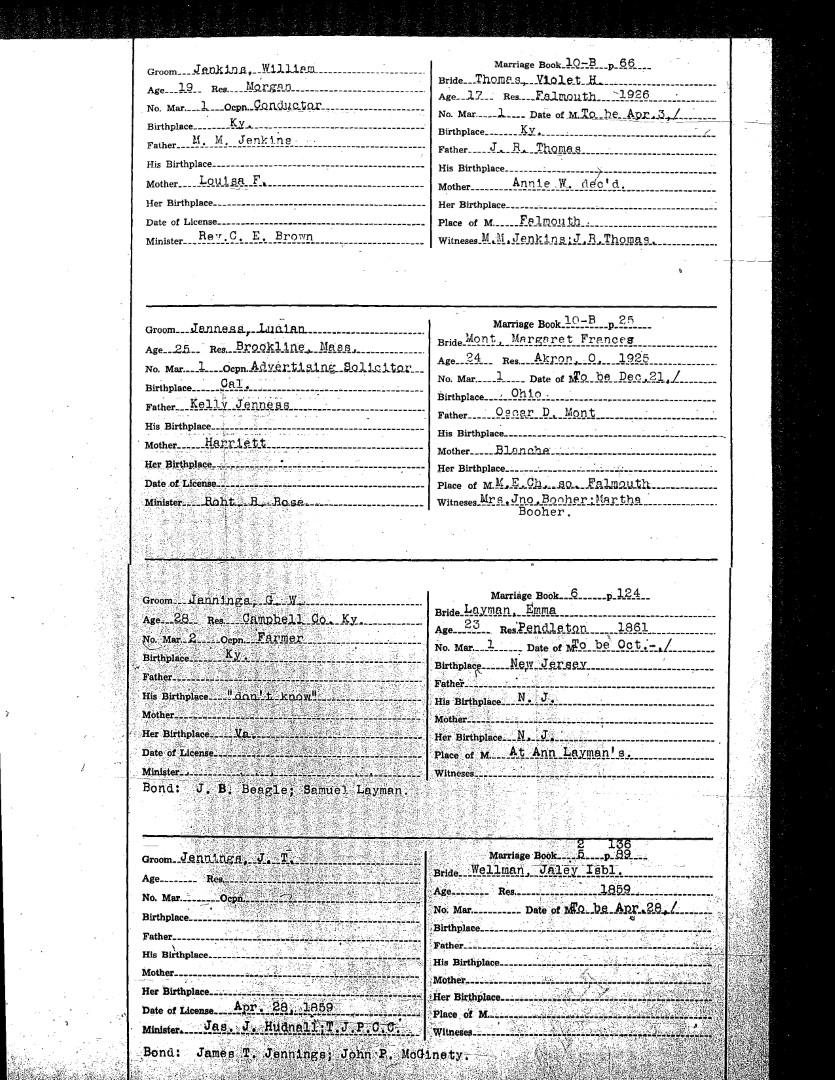 Groom Jenkins, William
Age 19 Res. Morgan
No. Mar. 1 Ocpn. Conductor
Birthplace Ky.
Father M. M. Jenkins
His Birthplace
Mother Louisa F.
Her Birthplace
Date of License
Minister Rev. C. E. Brown
Marriage Book 10-B p. 66
Bride Thomas, Violet H.
Age 17 Res. Falmouth 1926
No. Mar. 1 Date of M. To be Apr.3,/
Birthplace Ky.
Father J. R. Thomas
His Birthplace
Mother Annie W. dec'd.
Her Birthplace
Place of M. Falmouth
Witnesses M.M.Jenkins;J.R.Thomas.
Groom Jenness, Lucian
Age 25 Res. Brookline, Mass.
No. Mar. 1 Ocpn. Advertising Solicitor
Birthplace Cal.
Father Kelly Jenness
His Birthplace
Mother Harriett
Her Birthplace
Date of License
Minister Robt. R. Rose
Marriage Book 10-B p. 25
Bride Mont, Margaret Frances
Age 24 Res. Akron, O. 1925
No. Mar. 1 Date of M. To be Dec.21,/
Birthplace Ohio
Father Oscar D. Mont
His Birthplace
Mother Blanche
Her Birthplace
Place of M. M.E.Ch. so. Falmouth
Witnesses Mrs.Jno.Booher;Martha
Booher.
Groom Jennings, G. W.
Age 28 Res. Campbell Co. Ky.
No. Mar. 2 Ocpn. Farmer
Birthplace Ky.
Father
His Birthplace "don't know"
Mother
Her Birthplace Va.
Date of License
Minister
Bond: J. B. Beagle; Samuel Layman.
Marriage Book 6 p. 124
Bride Layman, Emma
Age 23 Res. Pendleton 1861
No. Mar. 1 Date of M. To be Oct.-,/
Birthplace New Jersey
Father
His Birthplace N. J.
Mother
Her Birthplace N. J.
Place of M. At Ann Layman's.
Witnesses
Groom Jennings, J. T.
Age Res.
No. Mar. Ocpn.
Birthplace
Father
His Birthplace
Mother
Her Birthplace
Date of License Apr. 28, 1859
Minister Jas. J. Hudnall;T.J.P.C.C.
Bond: James T. Jennings; John P. McGinety.
2 136
Marriage Book 5 p. 89
Bride Wellman, Jaley Isbl.
Age Res. 1859
No. Mar. Date of M. To be Apr.28,/
Birthplace
Father
His Birthplace
Mother
Her Birthplace
Place of M.
Witnesses